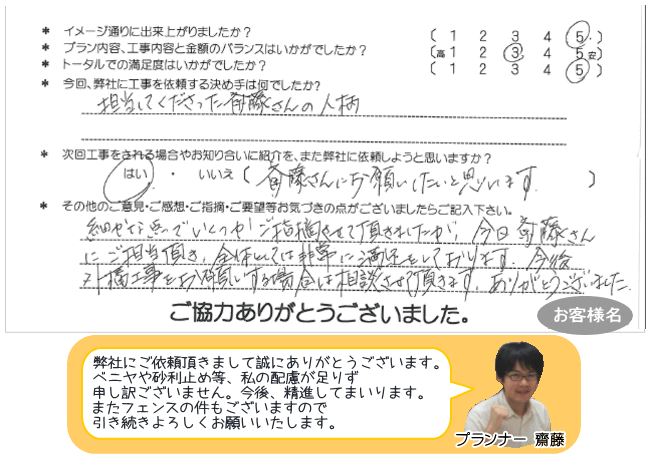 * イメージ通りに出来上がりましたか? ( 1 2 3 4 5 )
* プラン内容、工事内容と金額のバランスはいかがでしたか? (高 1 2 3 4 5 安)
* トータルでの満足度はいかがでしたか? ( 1 2 3 4 5 )
* 今回、弊社に工事を依頼する決め手は何でしたか?
担当してくださった斎藤さんの人柄
* 次回工事をされる場合やお知り合いに紹介を、また弊社に依頼しようと思いますか?
はい ・ いいえ ( 斎藤さんにお願いしたいと思います。 )
* その他のご意見・ご感想・ご指摘・ご要望等お気づきの点がございましたらご記入下さい。
細やな点でいくつかご指摘させて頂きましたが、今日斎藤さん
にご担当頂き、全体としては非常に満足をしております。今後
外構工事をお願いする場合は相談させて頂きます。ありがとうございました。
ご協力ありがとうございました。
お客様名
弊社にご依頼頂きまして誠にありがとうございます。
ベニヤや砂利止め等、私の配慮が足りず
申し訳ございません。今後、精進してまいります。
またフェンスの件もございますので
引き続きよろしくお願いいたします。
プランナー 齋藤